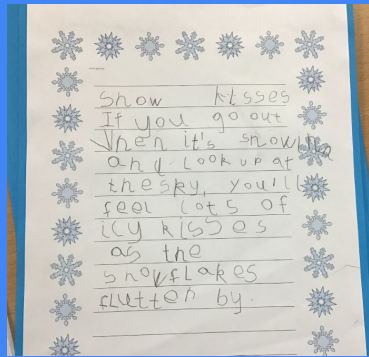 Snow kisses
If you go out
When it's snowing
and look up at
the sky, you'll
feel lots of
icy kisses
as the
snowflakes
flutter by.